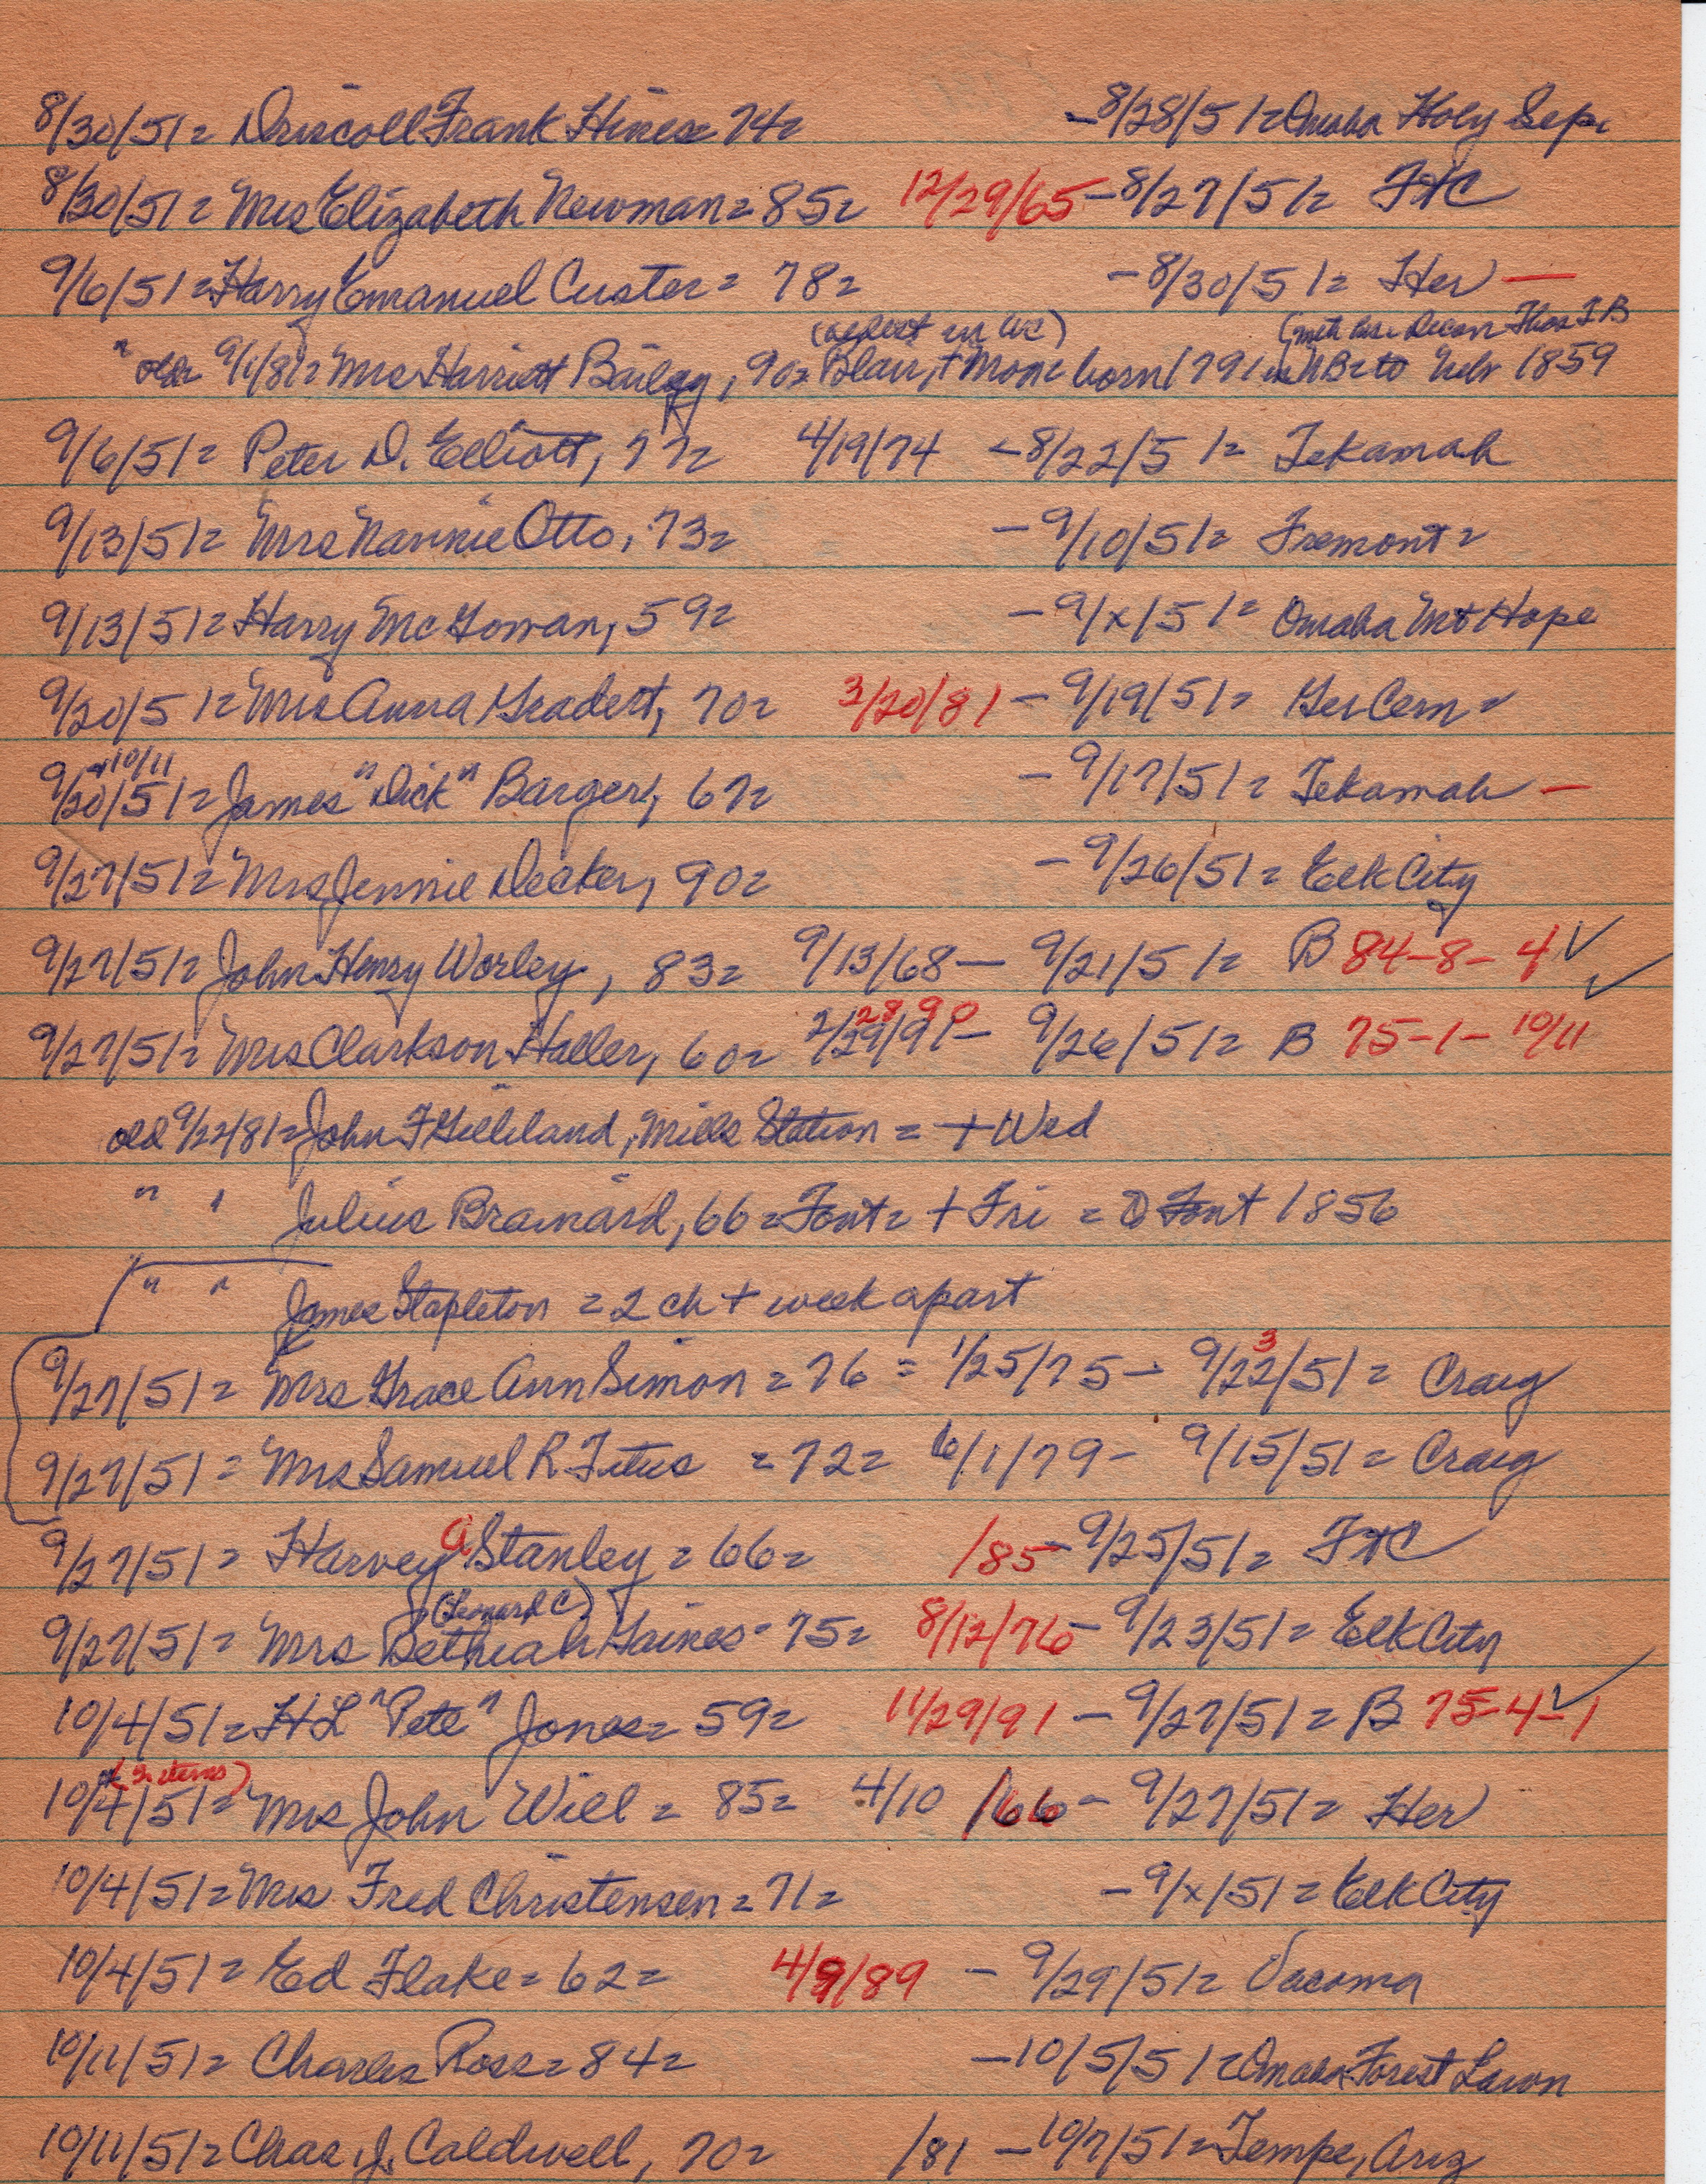 8/30/51= Driscoll Frank Hines= 74= -8/28/51= Omaha Holy Sep.
8/30/51= Mrs Elizabeth Newman= 85= 12/29/65-8/27/51= FtC
9/6/51= Harry Emanuel Custer= 78= -8/30/51= Her —
(oldest in WC) (with hus. Deacon Thos T B
" old 9/1/81= Mrs Harriett Bailey, 90= Blair, + Mon= born 1791 in NB= to Neb 1859
9/6/51= Peter D. Elliott, 77= 4/19/74 -8/22/51= Tekamah
9/13/51= Mrs Nannie Otto, 73= -9/10/51= Fremont=
9/13/51= Harry McGowan, 59= -9/x/51= Omaha Mt Hope
9/20/51= Mrs Anna Gradert, 70= 3/20/81 -9/19/51= Ger Cem=
+10/11
9/20/51= James "Dick" Barger, 67= -9/17/51= Tekamah —
9/27/51= Mrs Jennie Decker, 90= -9/26/51= Elk City
9/27/51= John Henry Worley, 83= 9/13/68- 9/21/51= B 84-8-4 ✓
28 90 ✓
9/27/51= Mrs Clarkson Haller, 60= 2/29/91- 9/26/51= B 75-1-10/11
old 9/22/81= John F Gilliland, Mills Station = + Wed
" " Julius Brainard, 66= Font= + Fri = Font 1856
" " James Stapleton = 2 ch + week apart
3
9/27/51= Mrs Grace Ann Simon = 76 = 1/25/75- 9/22/51= Craig
9/27/51= Mrs Samuel R Titus = 72= 6/1/79- 9/15/51= Craig
9/27/51= Harvey a Stanley = 66= /85-9/25/51= FtC
(Leonard C)
9/27/51= Mrs Bethiah Gaines= 75= 8/12/76- 9/23/51= Elk City
10/4/51= HL "Pete" Jones= 59= 11/29/91 -9/27/51= B 75-4-1 ✓
(2 items)
10/4/51= Mrs John Will = 85= 4/10 /66- 9/27/51= Her
10/4/51= Mrs Fred Christensen= 71= -9/x/51= Elk City
10/4/51= Ed Flake= 62= 4/9/89 - 9/29/51= Vacoma
10/11/51= Charles Ross= 84= -10/5/51= Omaha Forest Lawn
10/11/51= Chas. J. Caldwell, 70= /81 -10/7/51= Tempe, Ariz